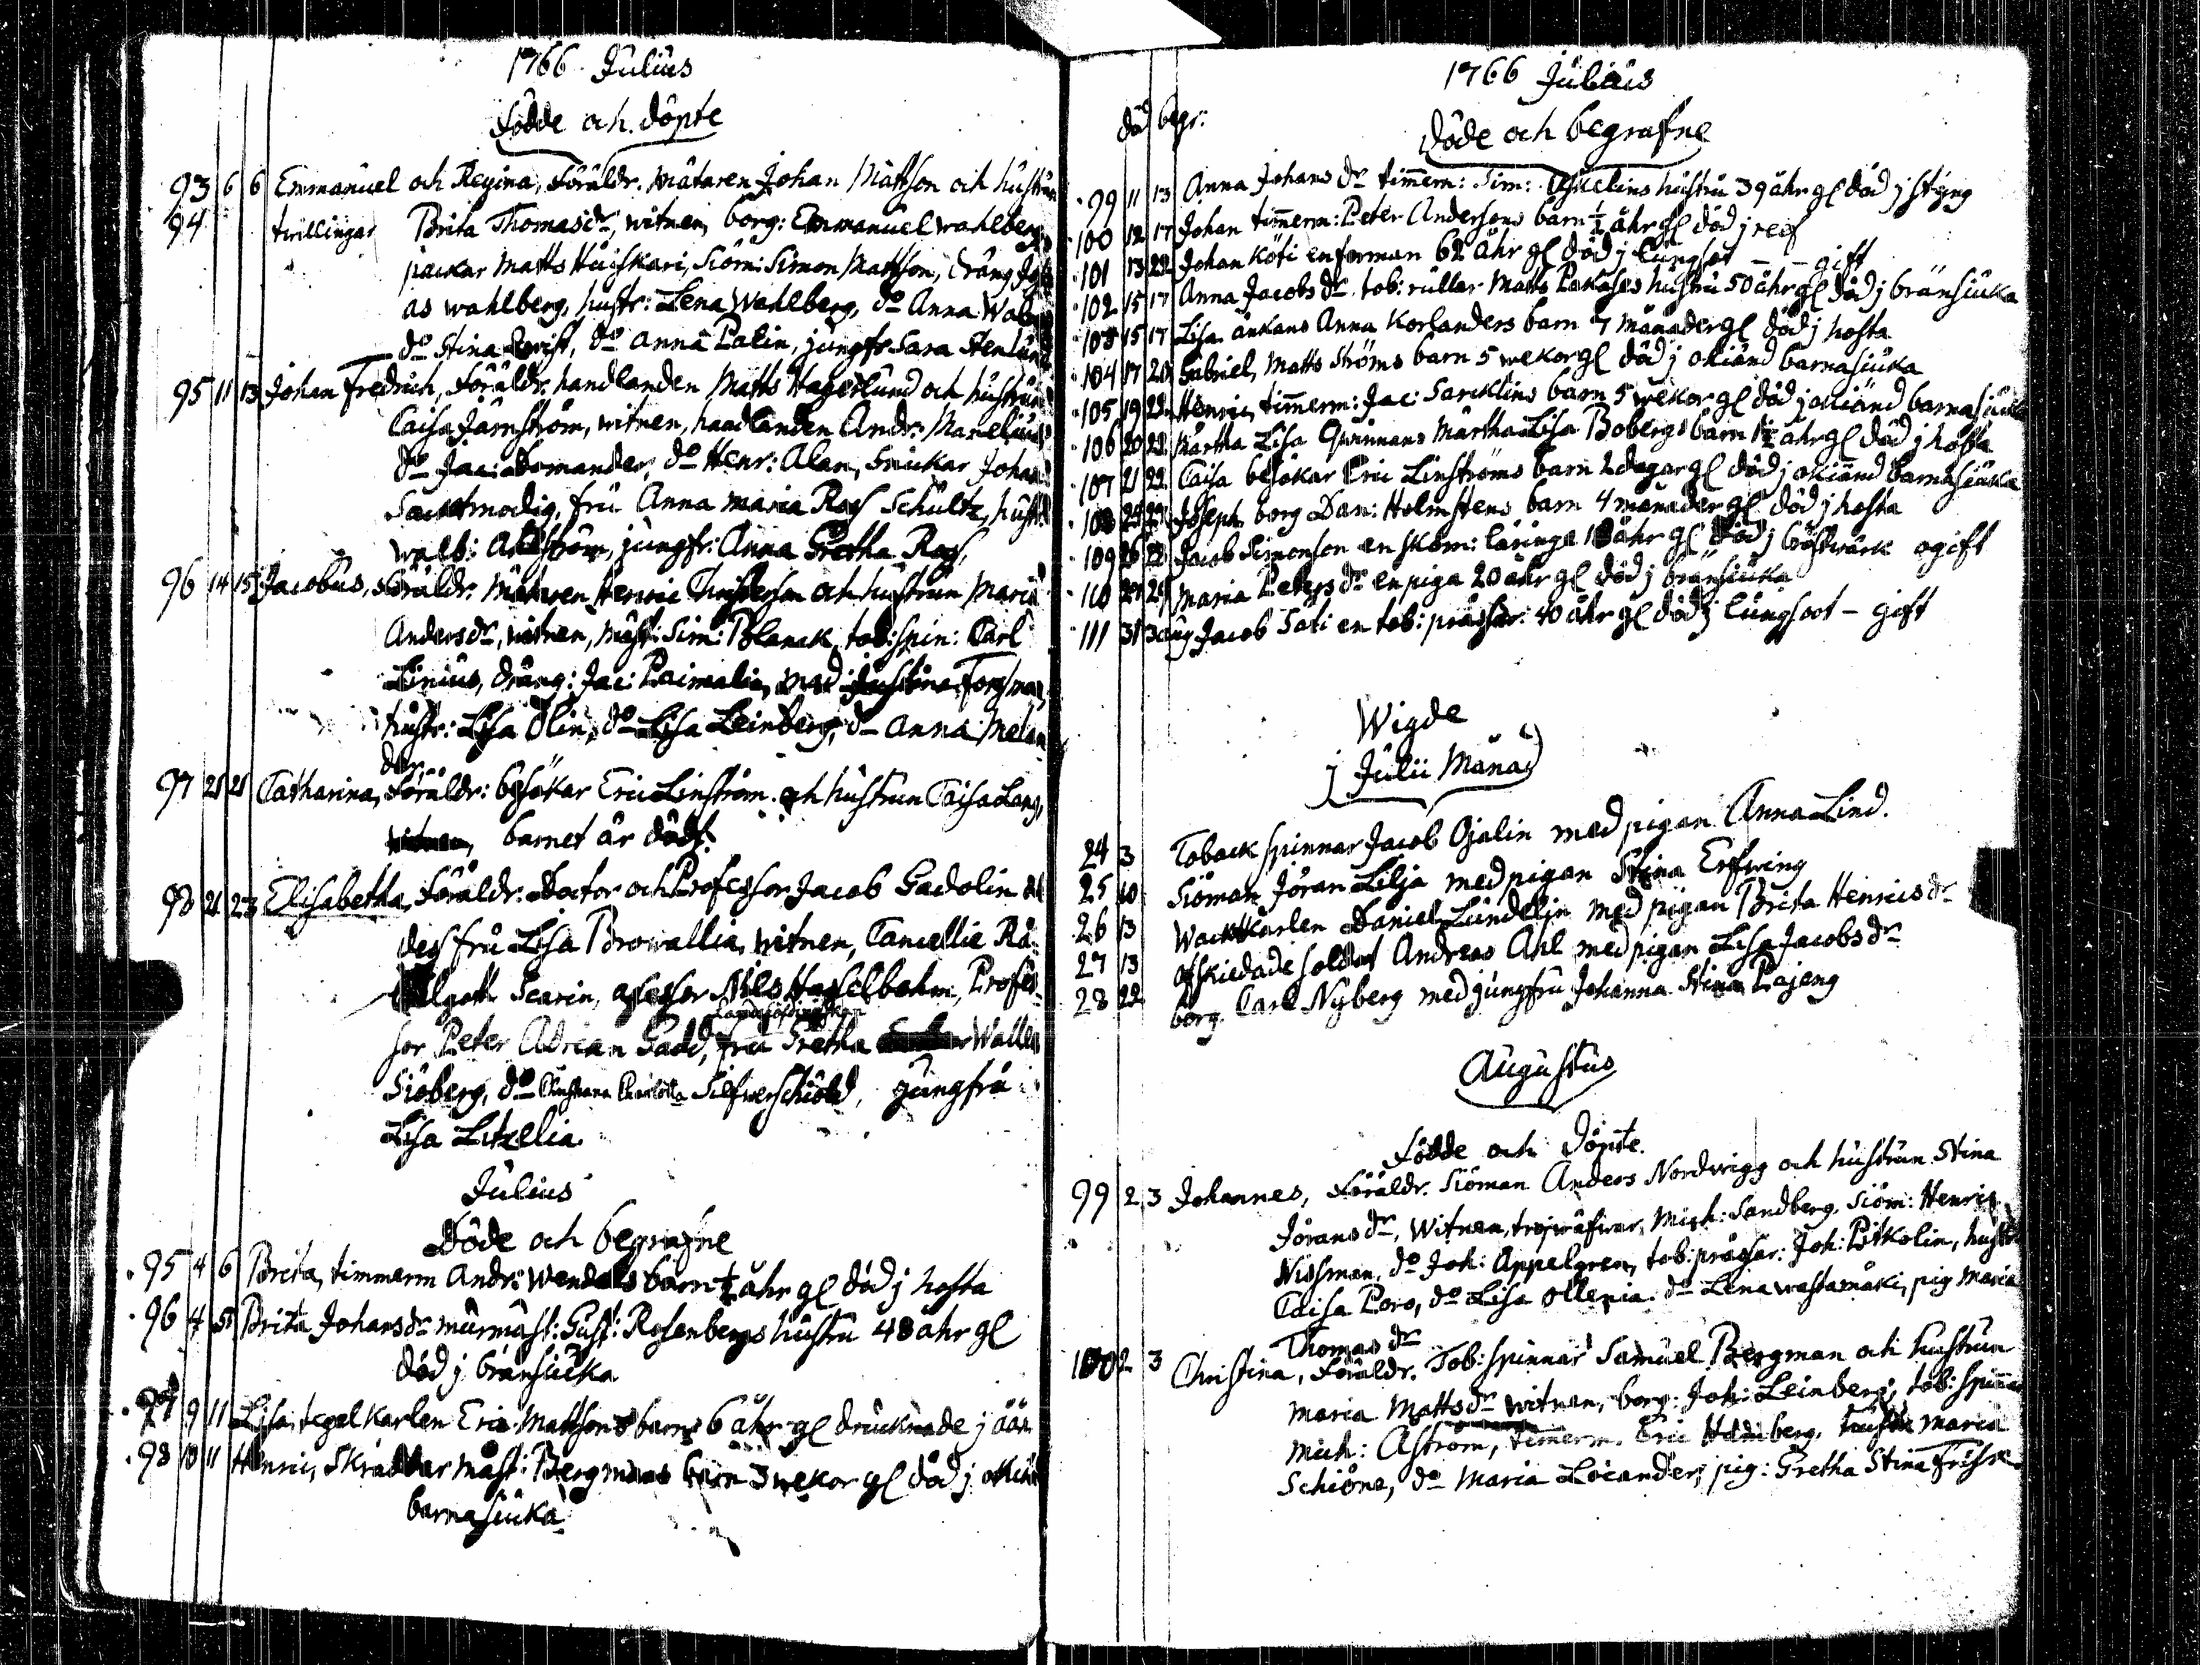 1766 Julius
Födde och döpte
93 6 6 Emmanuel och Regina, Föräldr. mätaren Johan Mattson och hustrun
94 twillingar Brita Thomasdr, witnen, borg: Emmanuel wahlberg,
packar Matts Huiskari, Siöm: Simon Mattson, dräng
as wahlberg, hustr: Lena Wahlberg, do Anna
do Stina Qwist, do Anna Palin, jungfr Sara Stenlund
95 11 13 Johan Fredrich, Föräldr. handlanden Matts Hagerlund och hustrun
Caisa Järnström, witnen, handlanden Andr: Marelius
do Jac: Domander, do Henr: Alan, Snickar Johan
Sachtmodig, fru Anna maria Ross Schultz, hustr
walb: jungfr: Anna Gretha Ross,
96 14 15 Jacobus, Föräldr. Mätaren Henric och hustrun Maria
Andersdr, witnen, mäst: Sim: Polack, tob: spin: Carl
Linius, dräng: Jac: mad: Justina Forsman,
hustr: Lisa Olin, do Lisa Leinberg, do Anna Melan
der,
97 21 21 Catharina, Föräldr: besökar Eric Linström och hustrun Caisa Lang,
witnen, barnet är dödt.
98 21 23 Elisabetha, Föräldr. Doctor och Professor Jacob Gadolin och
dess fru Lisa Browallia, witnen, Cancellie Rå
Algoth Scarin, assessor Nils Hasselbohm, Profes
Landshöfdingskan
sor Peter Adrian Gadd, fru Gretha Wallen
Siöberg, do Christiana Charlotta Silfwerschiöld, jungfru
Lisa Litzelia
Julius
Döde och begrafne
95 4 6 Brita, timmerm Andr: Wendells barn ½ åhr gl död j hosta
96 4 5 Brita Johansdr murmäst: Gust: Rosenbergs hustru 48 åhr gl
död j bränsiuka
97 9 11 Lisa, tegelkarlen Eric Mattsons barn 6 åhr gl drucknade j åån
98 10 11 Henric, Skräddar mäst: Bergmans barn 3 wekor gl död j okiänd
barnasiuka
1766 Julius
död begr:
Döde och begrafne
99 11 13 Anna Johansdr timmerm: Sim: hustru 39 åhr gl död j styng
100 12 17 Johan timmerm: Peter Andersons barn ½ åhr gl död j ref
101 13 22 Johan Köti en forman 62 åhr gl död j lungsot - - gift
102 15 17 Anna Jacobsdr tob: rullar Matts Pakases hustru 50 åhr gl död j bränsiuka
103 15 17 Lisa änkans Anna Korlanders barn 7 månader gl död j hosta
104 17 20 Gabriel, Matts Ströms barn 5 wekor gl död j okiänd barnasiuka
105 19 22 Henric, timmerm: Jac: Sarcklins barn 5 wekor gl död j okiänd barnasiuka
106 20 22 Märtha Lisa Qwinnans Märtha Lisa Bobergs barn 1½ åhr gl död j hosta
107 21 22 Caisa besökar Eric Linströms barn 2 dagar gl död j okiänd barnasiuka
108 Joseph borg Dan: Holmstens barn 4 månader gl död j hosta
109 26 Jacob Simonson en skom: läringe 18 åhr gl död j bröstwärk ogift
110 27 29 Maria Petersdr en piga 20 åhr gl död j bränsiuka
111 31 3 aug Jacob Sati en tob: prässar: 40 åhr gl död j lungsoot - gift
Wigde
j Julii Månad
24 3 Toback spinnar Jacob Ojalin med pigan Anna Lind.
25 10 Siöman Jöran Lilja med pigan Stina Erfwing
26 13 Wacktkarlen Daniel Lundelin med pigan Brita Henricsdr
27 13 Afskiedade soldat Andreas Ahl med pigan Lisa Jacobsdr
28 22 borg. Carl Nyberg med jungfru Johanna Stina Pajeng
Augustus
Födde och Döpte.
99 2 3 Johannes, Föräldr. Siöman Anders Nordwigg och hustrun Stina
Jöransdr, Witnen, tröjwäfwar, Mich: Sandberg, Siöm: Henric
Nissman, do Joh: Appelgren, tob: prässar: Joh: Pitkolin, hustr
Caisa Poro, do Lisa Ollenia do Lena wastamäki, pig Maria
Thomasdr
100 2 3 Christina, Föräldr. Tob: spinnar Samuel Bergman och hustrun
Maria Mattsdr witnen, borg: Joh: Leinberg, tob: spinnar
Mich: Aström, timerm. Eric Holmberg, hustr Maria
Schiöne, do Maria Locander, pig: Gretha Stina